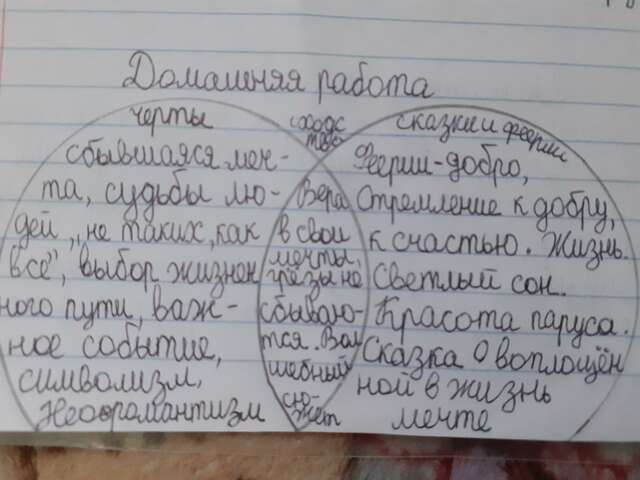 Домашняя работа
черты
сбывшаяся меч-
та, судьбы лю-
дей „не таких, как
все", выбор жизнен
ного пути, важ-
ное событие,
символизм,
Неоромантизм
сходс
тво
Вера
в свои
мечты,
грёзы не
сбываю-
тся. Вол
шебный
сю-
жет
сказки и феерии
Феерии-добро,
Стремление к добру,
к счастью. Жизнь.
Светлый сон.
Красота паруса.
Сказка О воплощён
ной в жизнь
мечте